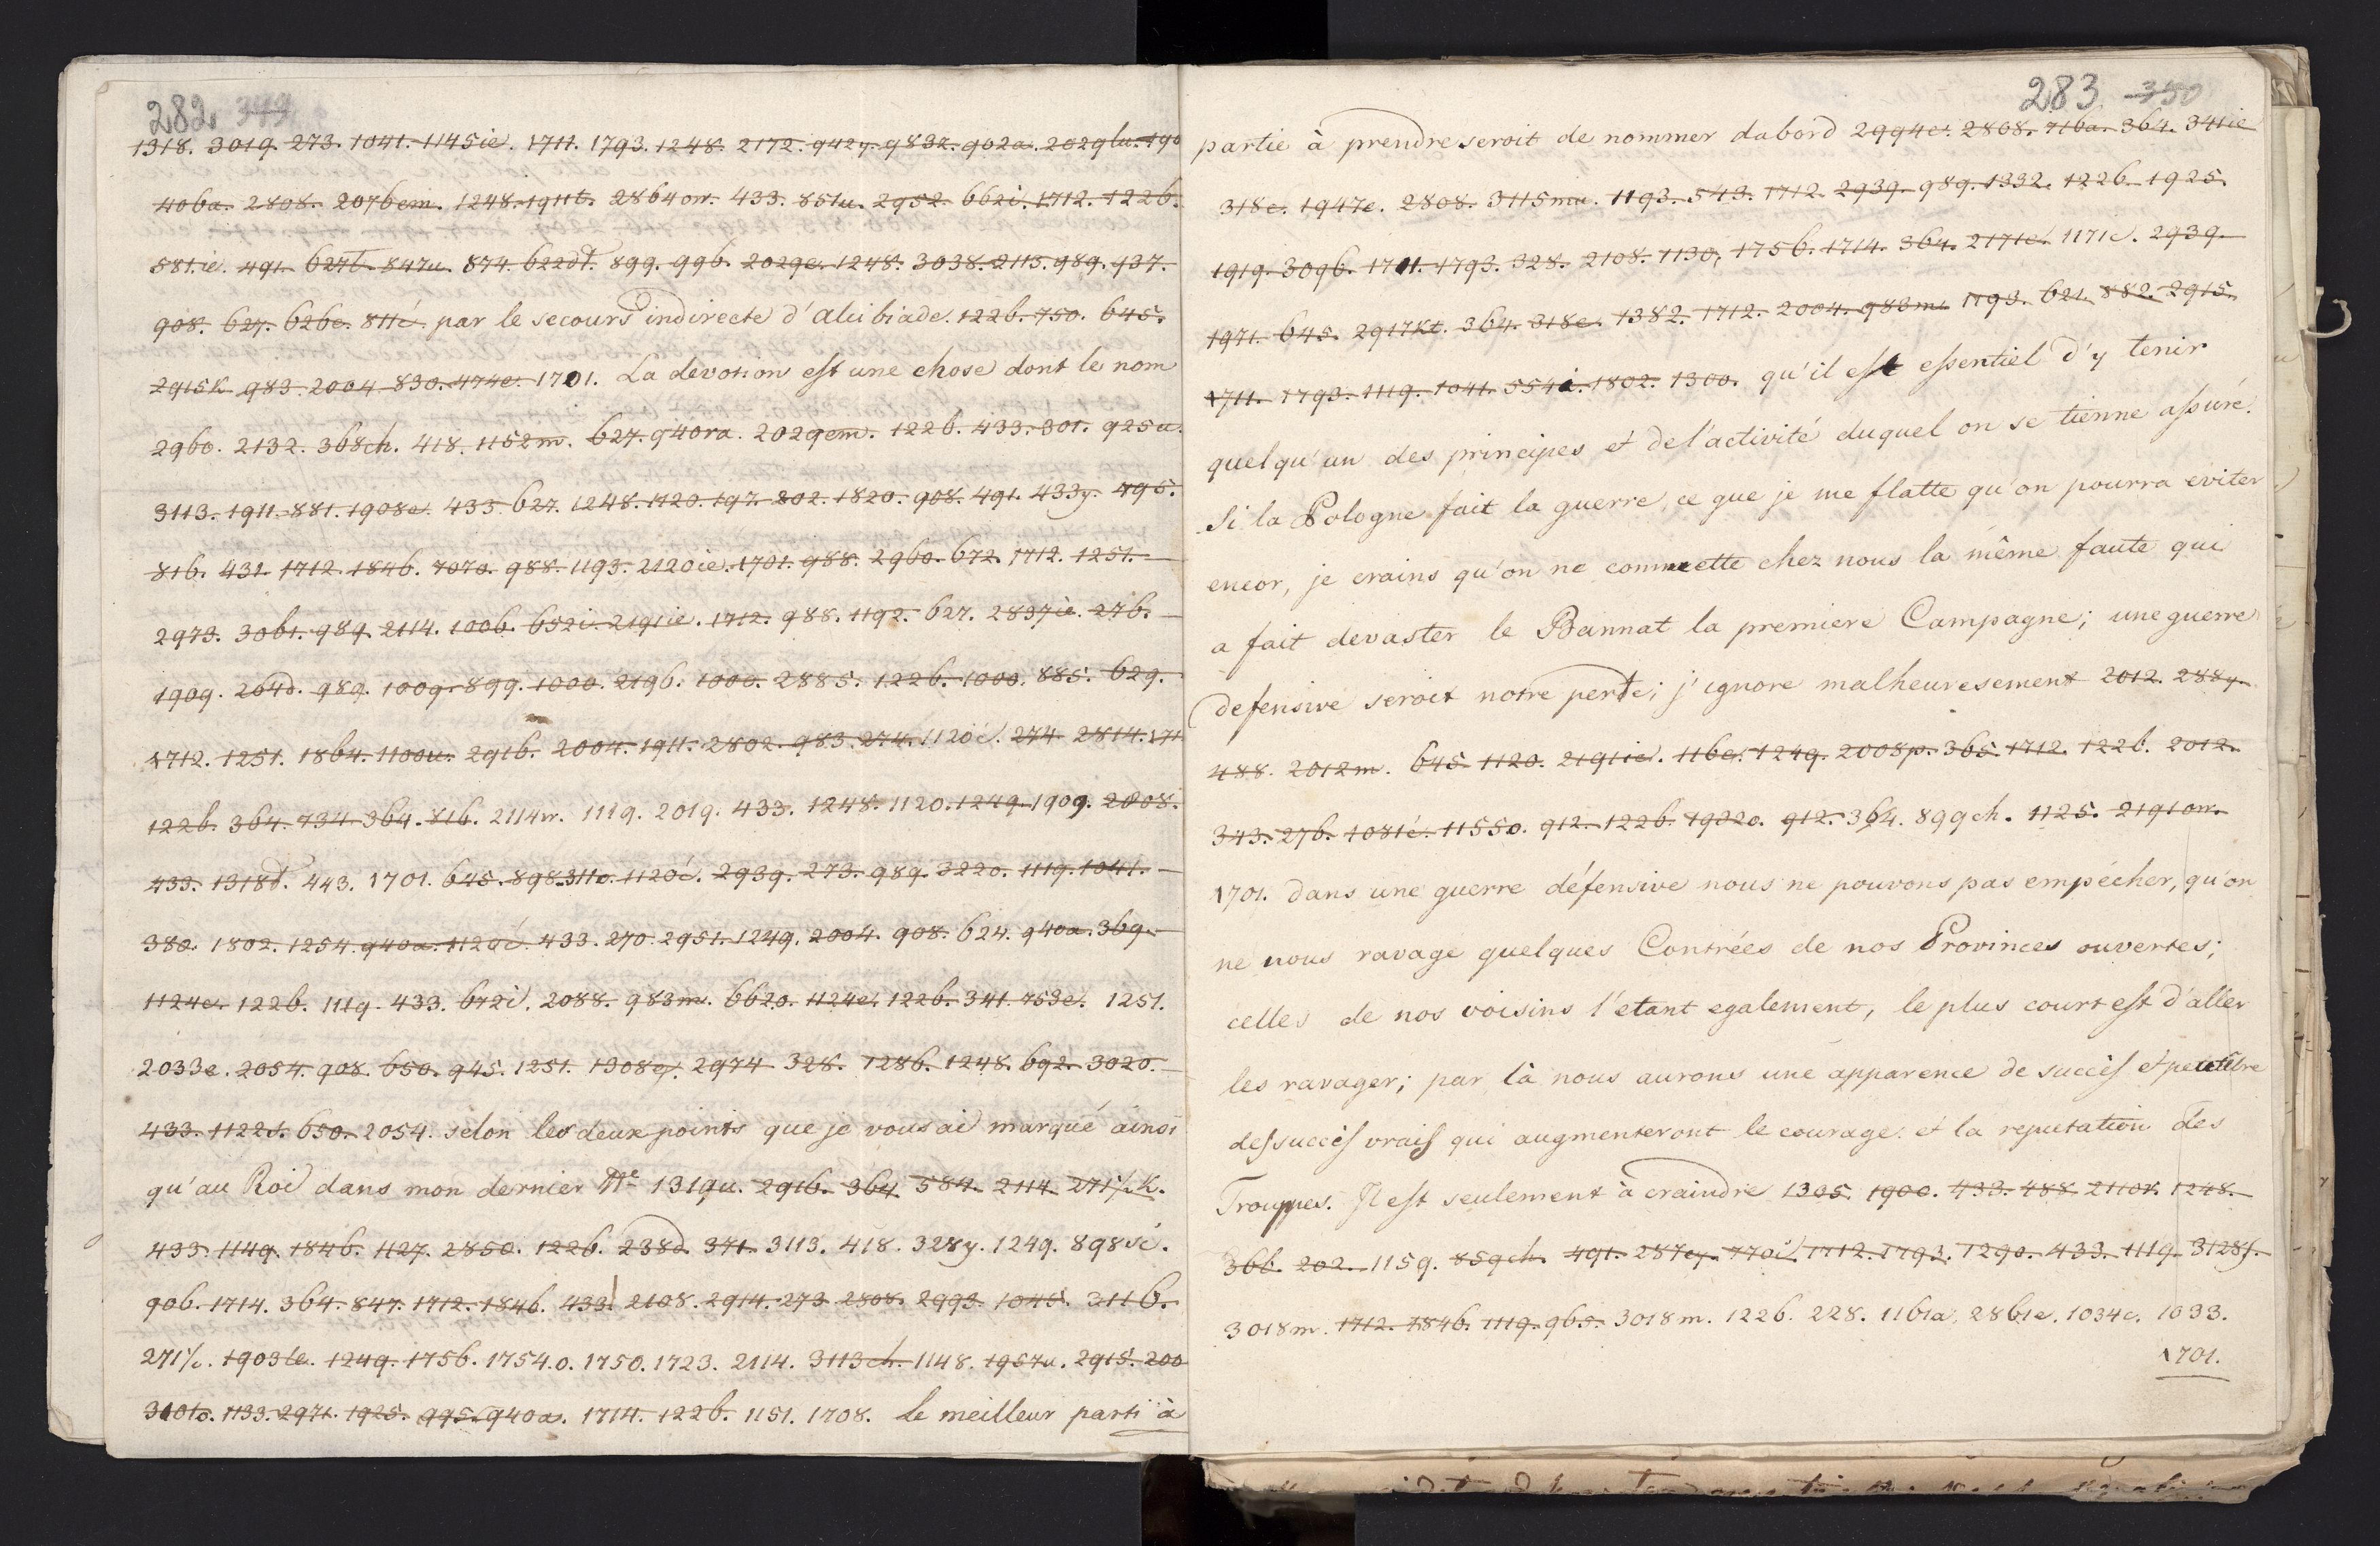 282. 349
1318. 3019. 273. 1041. 1145ie. 1711. 1793. 1248. 2172. 942y. 983k. 902a. 2029lu. 190
406a. 2808. 2076em. 1248. 1911t. 2864om. 433. 851u. 2952. 662i. 1712. 1226.
581.ie. 491. 627t. 847u. 874. 622dt. 899. 996. 2029e. 1248. 3038. 2115. 989. 937.
908. 627. 626e. 811é. par le secours indirecte d'Alcibiade. 1226. 750. 645.
2915k. 983. 2004. 830. 474e. 1701. La devotion est une chose dont le nom
2960. 2132. 368ch. 418. 1152m. 627. 940ra. 2029em. 1226. 433. 301. 925u.
3113. 1911. 881. 1908e. 433. 627. 1248. 1120. 197. 202. 1820. 908. 491. 433y. 495.
816. 431. 1712. 1846. 7070. 988. 1193. 2120ie. 1701. 988. 2960. 672. 1712. 1251.
2973. 3061. 989. 2114. 1006. 652i. 2191ie. 1712. 988. 1192. 627. 2837ie. 276.
1909. 204d. 989. 1009. 899. 1000. 2196. 1000. 2885. 1226. 1000. 885. 629.
1712. 1251. 1864. 1100u. 2916. 2004. 1911. 2802. 983. 274. 1120é. 274. 2814. 171
1226. 364. 734. 364. 816. 2114w. 1119. 2019. 433. 1248. 1120. 1249. 1909. 2808.
433. 1318d. 443. 1701. 645. 898. 3110. 1120é. 2939. 273. 989. 3220. 1119. 1041.
380. 1802. 1254. 940a. 1120é. 433. 270. 2951. 1249. 2004. 908. 624. 940a. 369.
1124e. 1226. 1119. 433. 672i. 2088. 983m. 6620. 1124e. 1226. 341. 753e. 1251.
2033e. 2054. 908. 650. 945. 1251. 1308ey. 2974. 328. 1286. 1248. 692. 3020.
433. 1122s. 650. 2054. selon les deux points que je vous ai marqué ainsi
qu'au Roi dans mon dernier Nº 1319u. 2916. 364. 584. 2114. 271%k.
433. 1149. 1846. 1127. 2850. 1226. 238d. 371. 3113. 418. 328y. 1249. 898sé.
906. 1714. 364. 847. 1712. 1846. 433. 2108. 2914. 273. 2808. 2993. 1045. 3116.
271%. 1903le. 1249. 1756. 1754.0. 1750. 1723. 2114. 3113ch. 1148. 1957u. 2915. 200
3101s. 1133. 2971. 1925. 995. 940a. 1714. 1226. 1151. 1708. Le meilleur parti à
283 350
partie à prendre seroit de nommer dabord 2994e. 2808. 716a. 364. 341ie
318e. 1947e. 2808. 3115mu. 1193. 543. 1712. 2939. 989. 1332. 1226. 1925.
1919. 3096. 1701. 1793. 328. 2108. 1130. 1756. 1714. 364. 2171e. 1171é. 2939.
1971. 645. 2917kt. 364. 318e. 1382. 1712. 2004. 983m. 1793. 621. 882. 2915.
1711. 1793. 1119. 1041. 554i. 1802. 1300. qu'il est essentiel d'y tenir
quelqu'un des principes et de l'activité duquel on se tienne assuré.
Si la Pologne fait la guerre, ce que je me flatte qu'on pourra eviter
encor, je crains qu'on ne commette chez nous la même faute qui
a fait devaster le Bannat la premiere Campagne; une guerre
defensive seroit notre perte; j'ignore malheuresement 2012. 288y.
488. 2012m. 645. 1120. 2191ie. 116e. 1249. 2008p. 365. 1712. 1226. 2012.
343. 276. 1081é. 11550. 912. 1226. 19020. 912. 364. 899ch. 1125. 2191om.
1701. dans une guerre défensive nous ne pouvons pas empécher, qu'on
ne nous ravage quelques Contrées de nos Provinces ouvertes;
celles de nos voisins l'etant egalement, le plus court est d'aller
les ravager; par là nous aurons une apparence de succès et peutêtre
des succès vrais qui augmenteront le courage et la reputation des
Trouppes. Il est seulement à craindre 1305. 1900. 433. 488. 2110r. 1248.
366. 202. 1159. 859ch. 491. 287ey. 770i. 1712. 1793. 1290. 433. 1119. 3128f.
3018m. 1712. 1846. 1119. 965. 3018m. 1226. 228. 1161a. 2861e. 1034c. 1033.
1701.